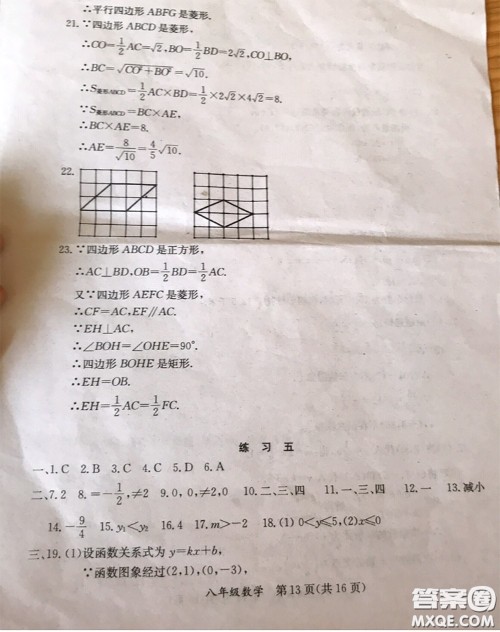 ∴平行四边形 ABFG 是菱形.
21.∵四边形 ABCD 是菱形,
∴CO=1/2 AC=√2,BO=1/2 BD=2√2,CO⊥BO,
∴BC=√(CO²+BO²)=√10.
∵S菱形ABCD=1/2 AC×BD=1/2×2√2×4√2=8.
∵S菱形ABCD=BC×AE,
∴BC×AE=8.
∴AE=8/√10=4/5 √10.
22.
23.∵四边形 ABCD 是正方形,
∴AC⊥BD,OB=1/2 BD=1/2 AC.
又∵四边形 AEFC 是菱形,
∴CF=AC,EF∥AC.
∵EH⊥AC,
∴∠BOH=∠OHE=90°.
∴四边形 BOHE 是矩形.
∴EH=OB.
∴EH=1/2 AC=1/2 FC.
练 习 五
一、1.C 2.B 3.C 4.C 5.D 6.A
二、7.2 8.=-1/2,≠2 9.0, 0,≠2,0 10.二、三、四 11.一、三、四 12.一 13.减小
14.-9/4 15.y₁<y₂ 16.4 17.m>-2 18.(1) 0<y≤5,(2)x≤0
三、19.(1)设函数关系式为 y=kx+b,
∵函数图象经过(2,1),(0,-3),
八年级数学 第13页(共16页)
答案圈
MXQE.COM